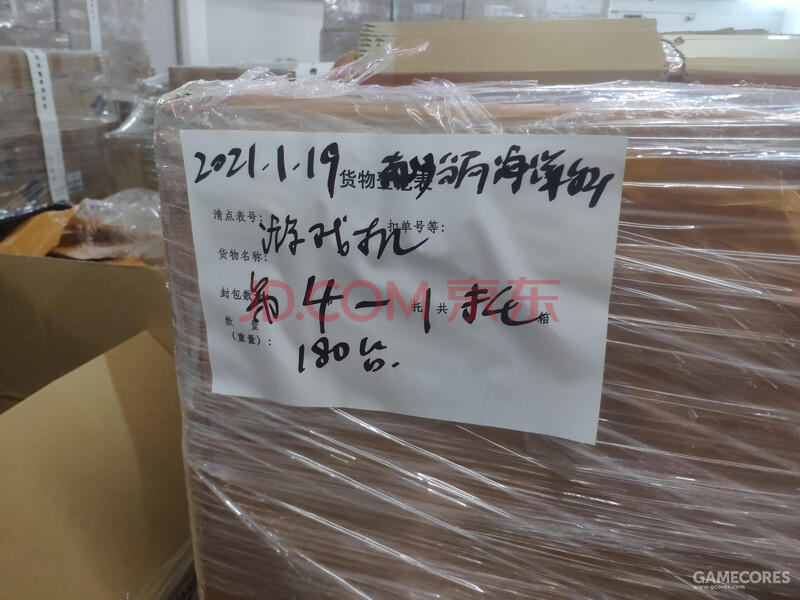 2021.1.19 货物
清点表号： 扣单号等：
货物名称： 游戏机
封包数 第4-1 托 共 托 箱
数 量
(重量)： 180台.
JD.COM 京东
GAMECORES
www.gcores.com